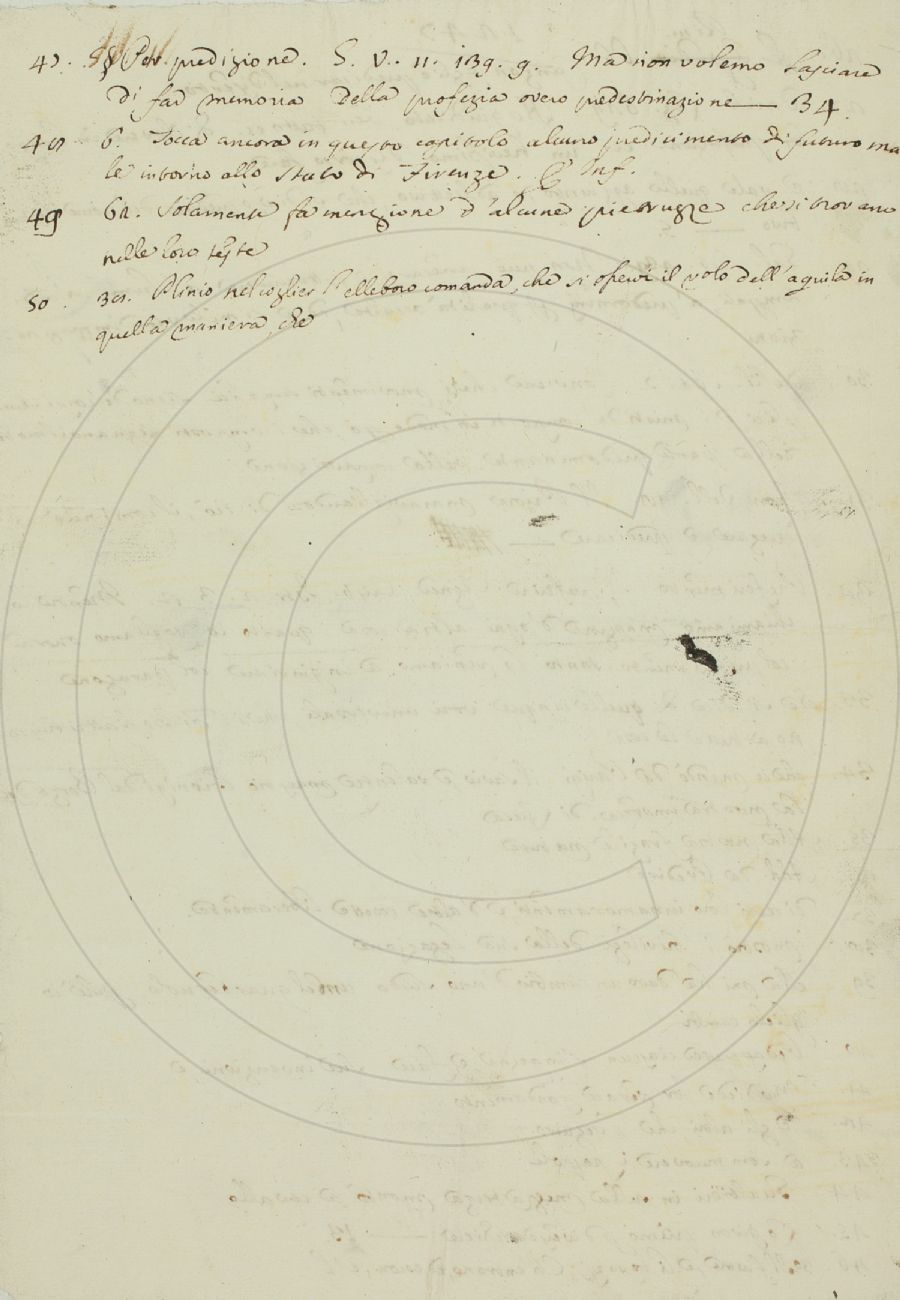 47. Per predizione. S. V. 11. 139. 9. Ma non volemo lasciare
di far memoria della profezia overo predestinazione — 34.
48 6. Tocca ancora in questo capitolo alcuno predicimento di futuro ma
le intorno allo stato di Firenze. C. Inf.
49 62. Solamente fa menzione d'alcune pietruzze che si trovano
nelle loro teste
50. 39. Plinio nel coglier l'elleboro comanda, che si osservi il volo dell'aquila in
quella maniera, che